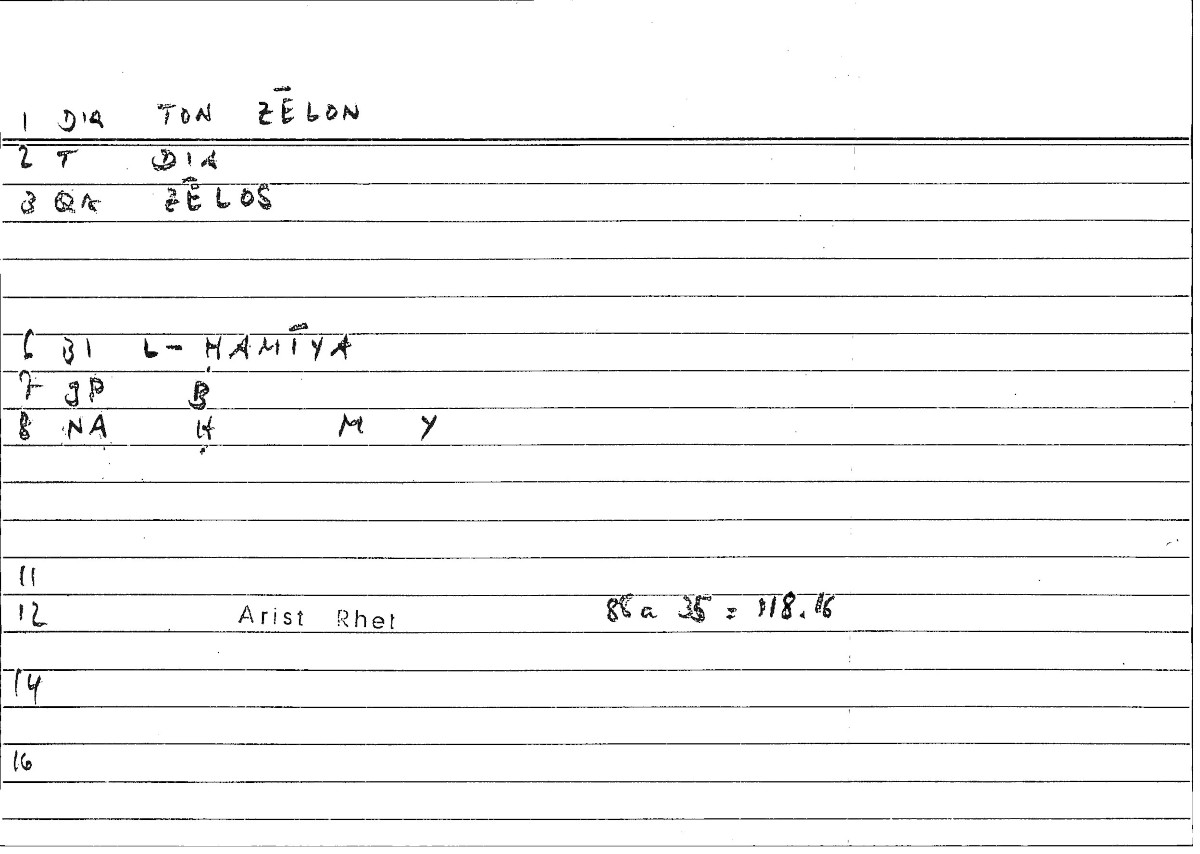 1 DIA TON ZĒLON
2 T DIA
3 QK ZĒLOS
6 BI L- ḤAMĪYA
7 gP B
8 NA Ḥ M Y
11
12 Arist Rhet 88 a 35 = 118.16
14
16